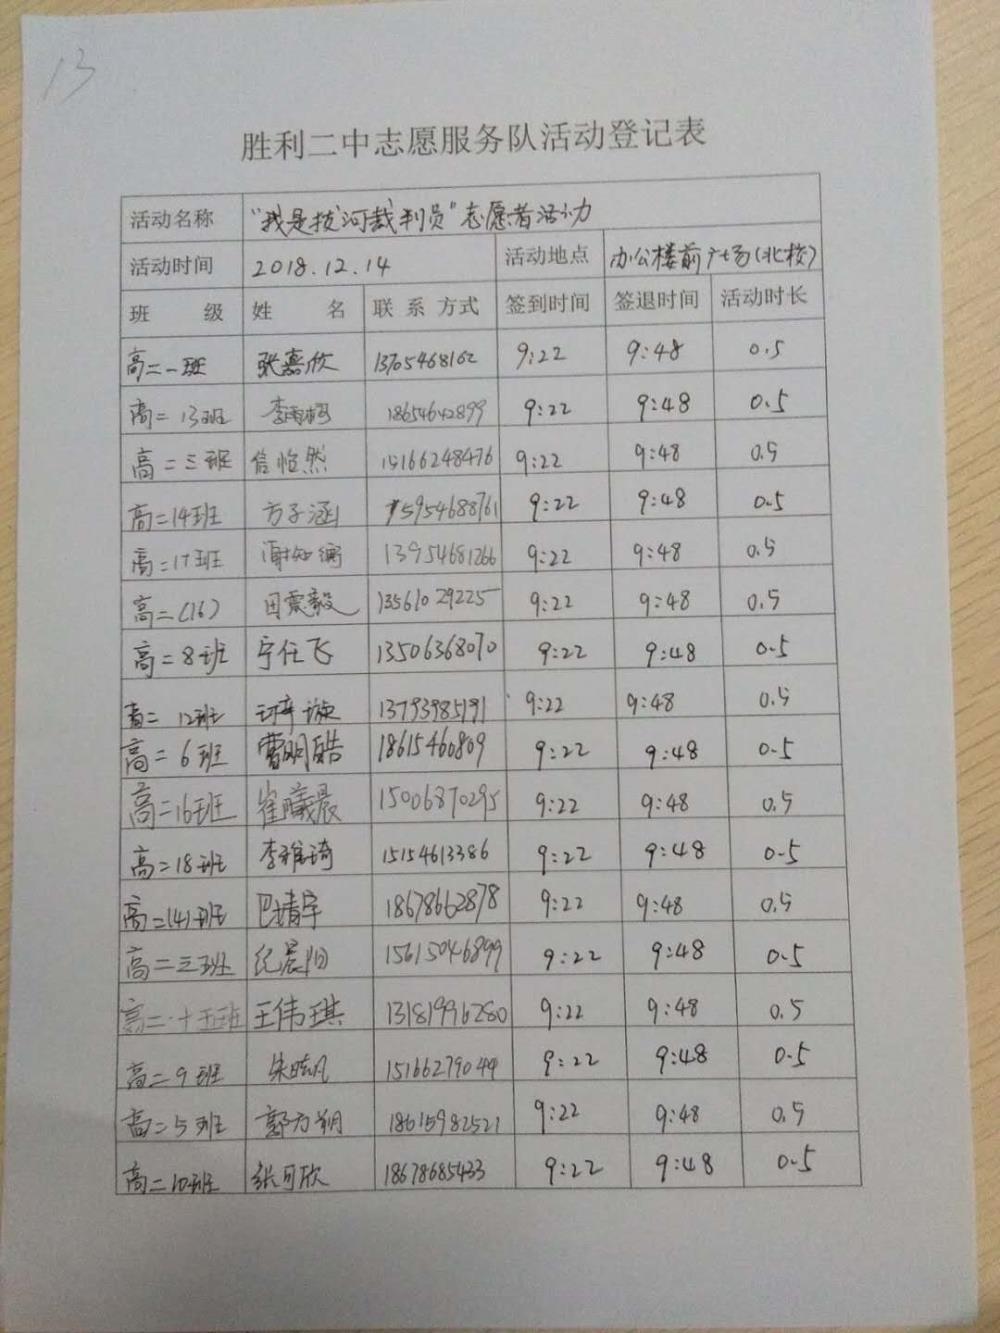 13
胜利二中志愿服务队活动登记表
活动名称 "我是拔河裁判员"志愿者活动
活动时间 2018.12.14 活动地点 办公楼前广场(北校)
班 级 姓 名 联系方式 签到时间 签退时间 活动时长
高二一班 张嘉欣 13705468162 9:22 9:48 0.5
高二 13班 18654642899 9:22 9:48 0.5
高二三班 信怡然 15166248476 9:22 9:48 0.5
高二14班 方子涵 15954688761 9:22 9:48 0.5
高二17班 13954681266 9:22 9:48 0.5
高二(16) 田震毅 13561029225 9:22 9:48 0.5
高二8班 宁任飞 13506368070 9:22 9:48 0.5
高二 12班 13793985191 9:22 9:48 0.5
高二6班 曹明皓 18615460809 9:22 9:48 0.5
高二16班 崔曦晨 15006870295 9:22 9:48 0.5
高二18班 李雅琦 15154613386 9:22 9:48 0.5
高二(4)班 巴靖宇 18678662878 9:22 9:48 0.5
高二三班 纪晨阳 15615046899 9:22 9:48 0.5
高二·十五班 王伟琪 13181996280 9:22 9:48 0.5
高二9班 朱晓凡 15166279044 9:22 9:48 0.5
高二5班 郭力朔 18615982521 9:22 9:48 0.5
高二10班 张可欣 18678685433 9:22 9:48 0.5